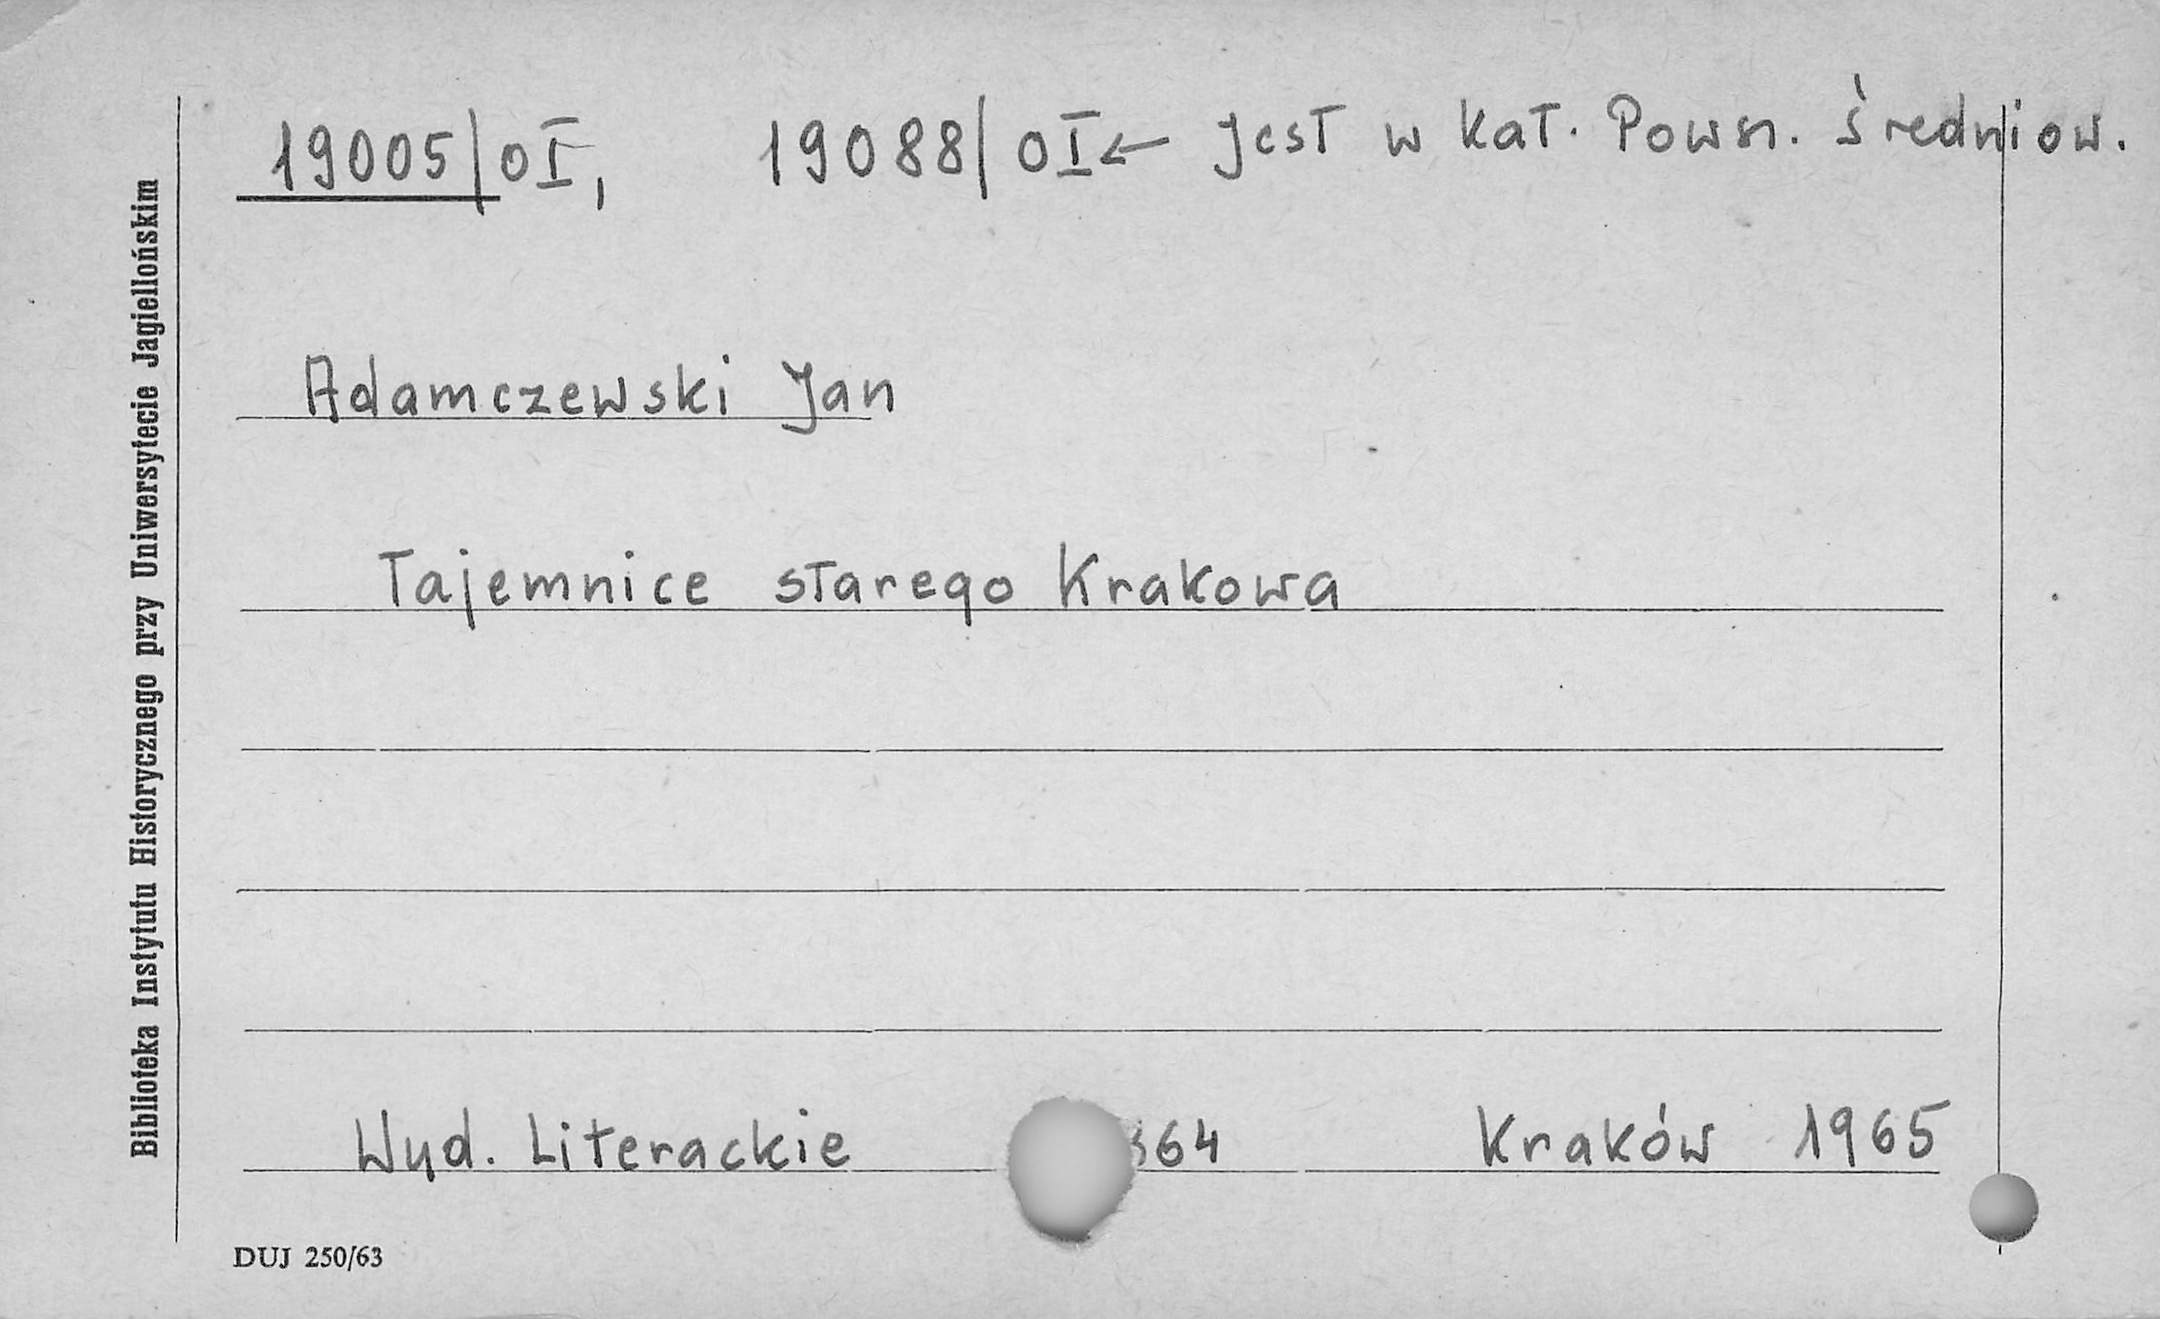 19005/oI, 19088/oI ← Jest w kat. Powsz. średniow.
Adamczewski Jan
Tajemnice starego Krakowa
Wyd. Literackie 364 Kraków 1965
DUJ 250/63
Biblioteka Instytutu Historycznego przy Uniwersytecie Jagiellońskim